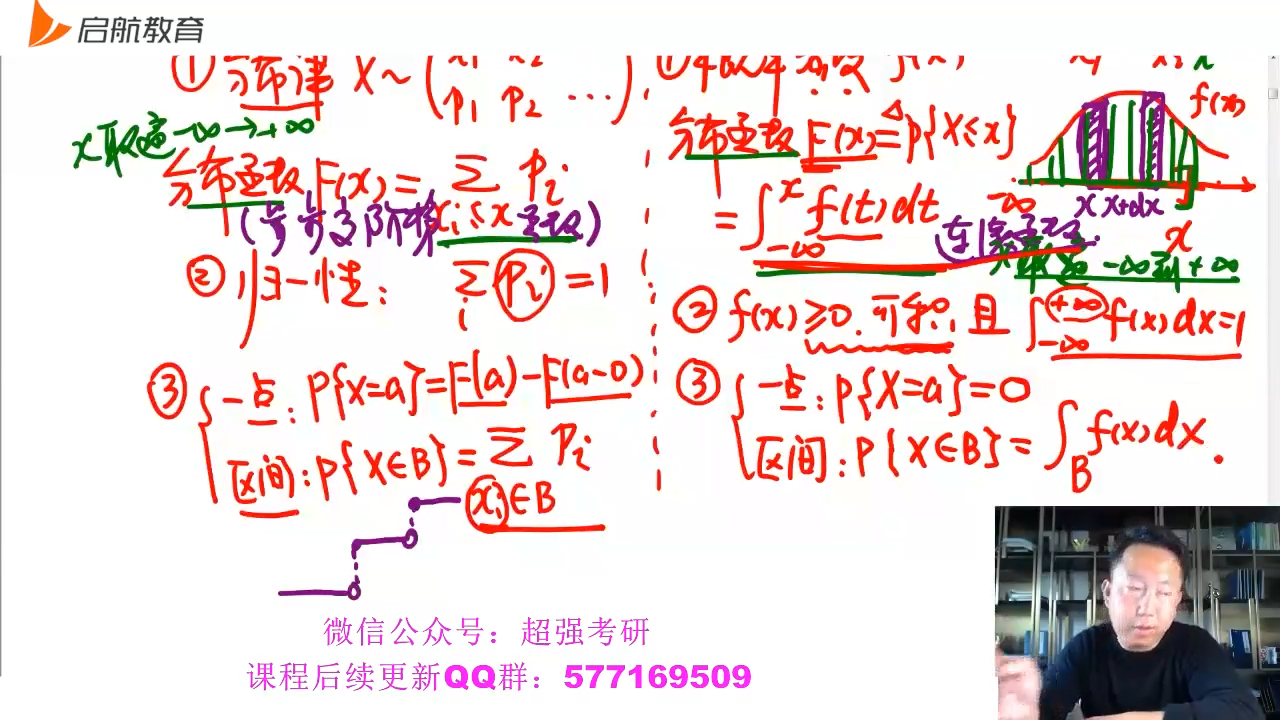 启航教育
① 分布律 X~( x₁ x₂
p₁ p₂ ...)
x取遍-∞→+∞
分布函数 F(x)= Σ pᵢ
xᵢ≤x
(步步高阶梯函数)
② 归一性: Σ pᵢ =1
i
③ { 一点: P{X=a}=F(a)-F(a-0)
区间: P{X∈B}= Σ pᵢ
xᵢ∈B
① 概率密度 f(x)
分布函数 F(x)≜P{X≤x}
= ∫_{-∞}^{x} f(t)dt
连续函数
f(x)
-∞ x x+dx x
-∞到+∞
② f(x)≥0.可积.且 ∫_{-∞}^{+∞} f(x)dx=1
③ { 一点: P{X=a}=0
区间: P{X∈B}= ∫_B f(x)dx.
微信公众号：超强考研
课程后续更新QQ群：577169509